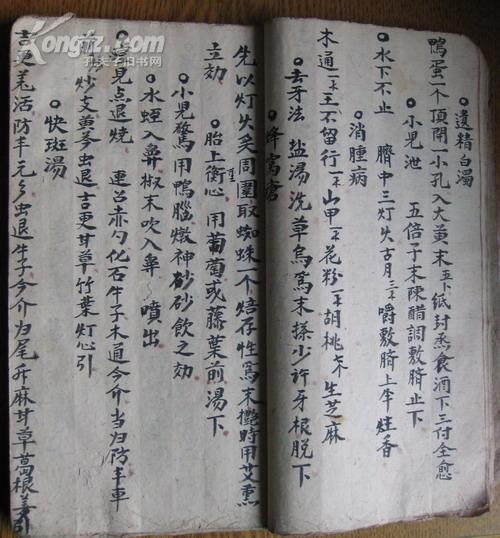 ○遺精白濁
鴨蛋一个頂開一小孔入大黄末五卜纸封烝食酒下三付全愈
○小児泄　五倍子末陳醋調敷臍止下
○水下不止　臍中三灯火古月三卜嚼敷臍上半炷香
○消腫病
木通一卜王不留行一卜山甲一卜花粉一卜胡桃七个生芝麻
○去牙法　盐湯洗草烏為末搽少許牙根脱下
○蜂窩瘡
先以灯火笑周圍取蜘蛛一个焙存性為末搀時用艾熏
立効　○胎上衡心　用葡萄或藤葉煎湯下
小児驚用鴨腦燉神砂砂飲之効
○水蛭入鼻　椒末吹入鼻　噴出
○見点退燒　連召赤勺化石牛子木通今介当归防丰車
前炒支黄芩虫退吉更甘草竹葉灯心引
○快斑湯
吉更羌活防丰元虫退牛子今介归尾升麻甘草葛根姜引
Kongfz.com
孔夫子旧书网